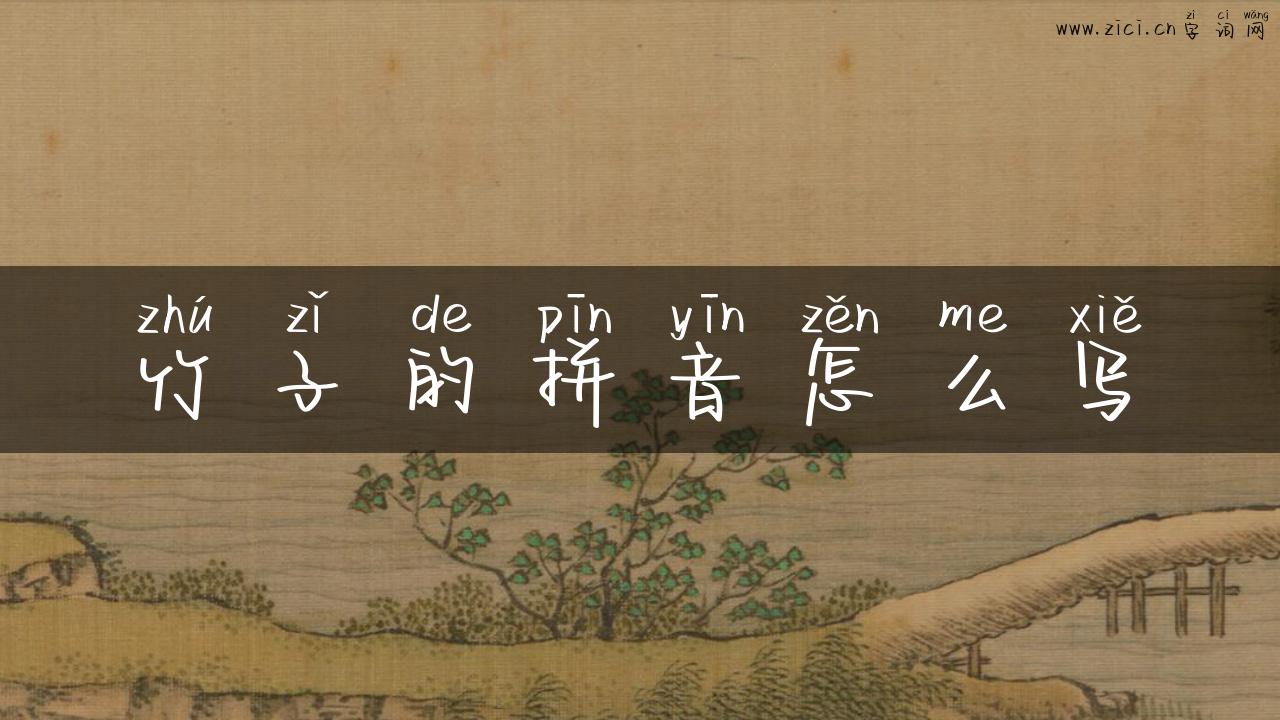 zì cí wǎng
www.zici.cn 字 词 网
zhú zǐ de pīn yīn zěn me xiě
竹 子 的 拼 音 怎 么 写